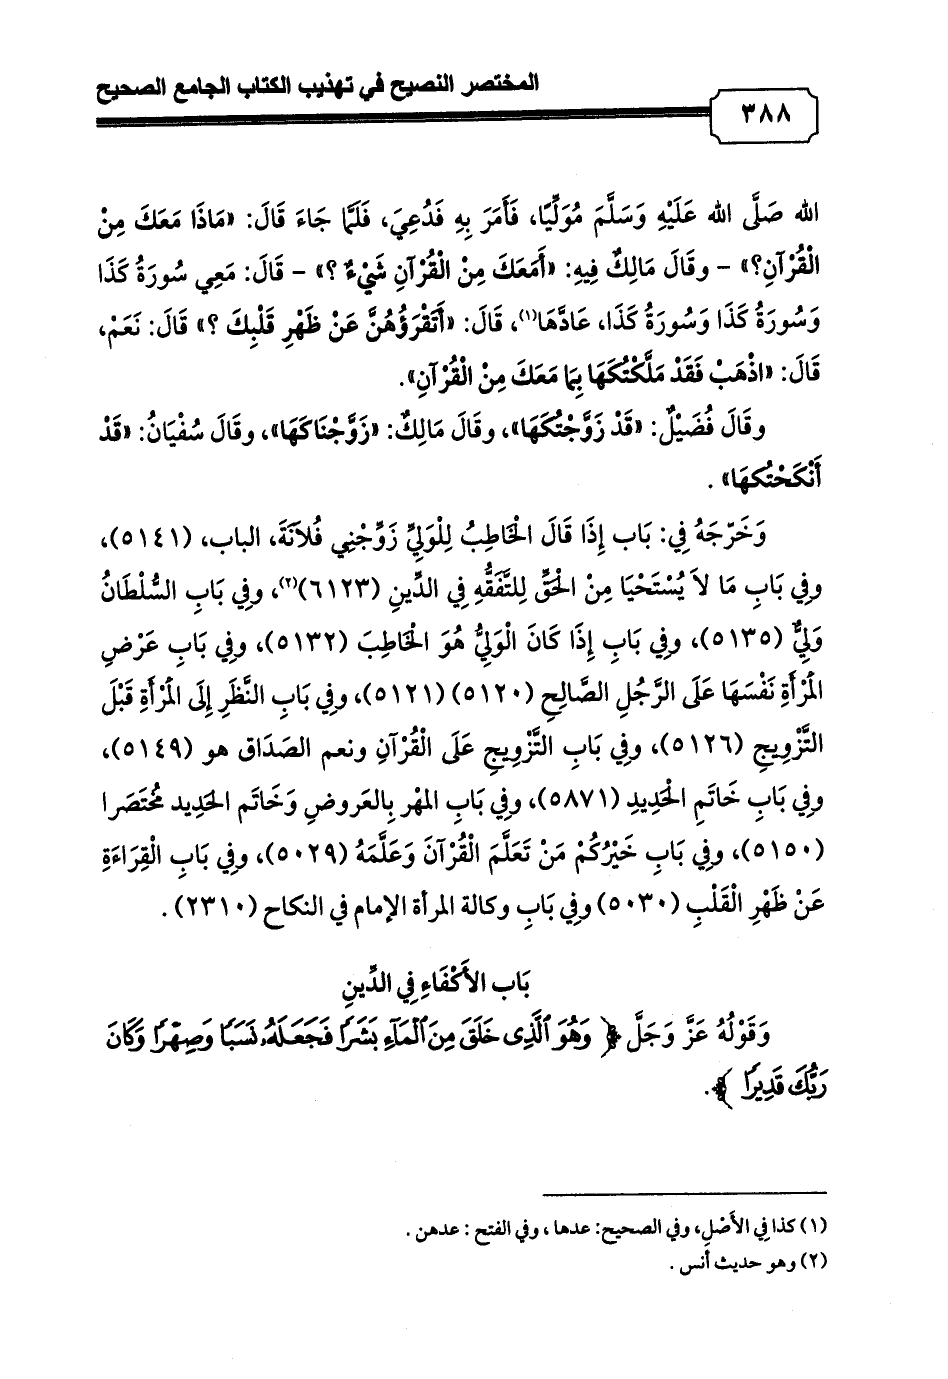 المختصر النصيح في تهذيب الكتاب الجامع الصحيح
٣٨٨
الله صَلَّى الله عَلَيْهِ وَسَلَّمَ مُوَلِّيًا، فَأَمَرَ بِهِ فَدُعِيَ، فَلَمَّا جَاءَ قَالَ: «مَاذَا مَعَكَ مِنْ
الْقُرْآنِ؟» - وقَالَ مَالِكٌ فِيهِ: «أَمَعَكَ مِنْ الْقُرْآنِ شَيْءٌ ؟» - قَالَ: مَعِي سُورَةُ كَذَا
وَسُورَةُ كَذَا وَسُورَةُ كَذَا، عَادَّهَا(١)، قَالَ: «أَتَقْرَؤُهُنَّ عَنْ ظَهْرِ قَلْبِكَ ؟» قَالَ: نَعَمْ،
قَالَ: «اذْهَبْ فَقَدْ مَلَّكْتُكَهَا بِمَا مَعَكَ مِنْ الْقُرْآنِ».
وقَالَ فُضَيْلٌ: «قَدْ زَوَّجْتُكَهَا»، وقَالَ مَالِكٌ: «زَوَّجْنَاكَهَا»، وقَالَ سُفْيَانُ: «قَدْ
أَنْكَحْتُكهَا» .
وَخَرّجَهُ فِي: بَاب إِذَا قَالَ الْخَاطِبُ لِلْوَلِيِّ زَوِّجْنِي فُلاَنَةَ، الباب، (٥١٤١)،
وفِي بَابِ مَا لاَ يُسْتَحْيَا مِنْ الْحَقِّ لِلتَّفَقُّهِ فِي الدِّينِ (٦١٢٣)(٢)، وفِي بَابِ السُّلْطَانُ
وَلِيٌّ (٥١٣٥)، وفِي بَابِ إِذَا كَانَ الْوَلِيُّ هُوَ الْخَاطِبَ (٥١٣٢)، وفِي بَابِ عَرْضِ
الْمَرْأَةِ نَفْسَهَا عَلَى الرَّجُلِ الصَّالِحِ (٥١٢٠) (٥١٢١)، وفِي بَابِ النَّظَرِ إِلَى الْمَرْأَةِ قَبْلَ
التَّزْوِيجِ (٥١٢٦)، وفِي بَابِ التَّزْوِيجِ عَلَى الْقُرْآنِ ونعم الصَدَاق هو (٥١٤٩)،
وفِي بَابِ خَاتَمِ الْحَدِيدِ (٥٨٧١)، وفِي بَابِ المهْر بِالعَروضِ وَخَاتَم الحَدِيد مُختَصَرا
(٥١٥٠)، وفِي بَابِ خَيْرُكُمْ مَنْ تَعَلَّمَ الْقُرْآنَ وَعَلَّمَهُ (٥٠٢٩)، وفِي بَابِ الْقِرَاءَةِ
عَنْ ظَهْرِ الْقَلْبِ (٥٠٣٠) وفِي بَابِ وكالة المرأة الإمام في النكاح (٢٣١٠) .
بَاب الأَكْفَاءِ فِي الدِّينِ
وَقَوْلُهُ عَزَّ وَجَلَّ ﴿ وَهُوَ ٱلَّذِى خَلَقَ مِنَ ٱلْمَآءِ بَشَرًا فَجَعَلَهُۥ نَسَبًا وَصِهْرًا وَكَانَ
رَبُّكَ قَدِيرًا ﴾.
(١) كذا فِي الأَصْلِ، وفي الصحيح: عدها ، وفي الفتح : عدهن .
(٢) وهو حديث أنس .